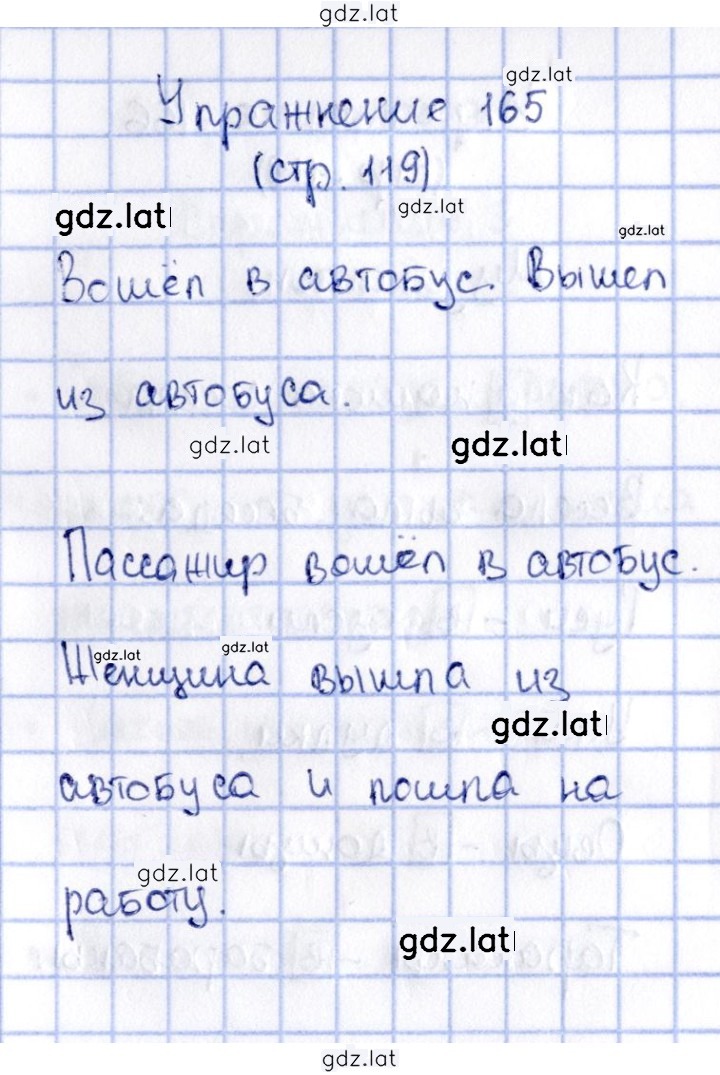 gdz.lat
gdz.lat
Упражнение 165
(стр. 119)
gdz.lat
gdz.lat
gdz.lat
Вошёл в автобус. Вышел
из автобуса.
gdz.lat
gdz.lat
Пассажир вошёл в автобус.
gdz.lat
gdz.lat
Женщина вышла из
gdz.lat
автобуса и пошла на
gdz.lat
работу.
gdz.lat
gdz.lat